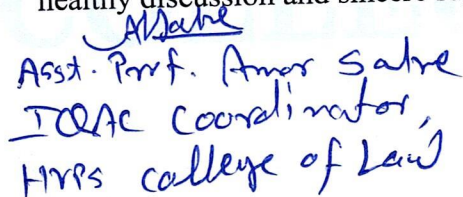 healthy discussion and sincere
ASalve
Asst. Prof. Amar Salve
IQAC Coordinator,
HVPS College of Law